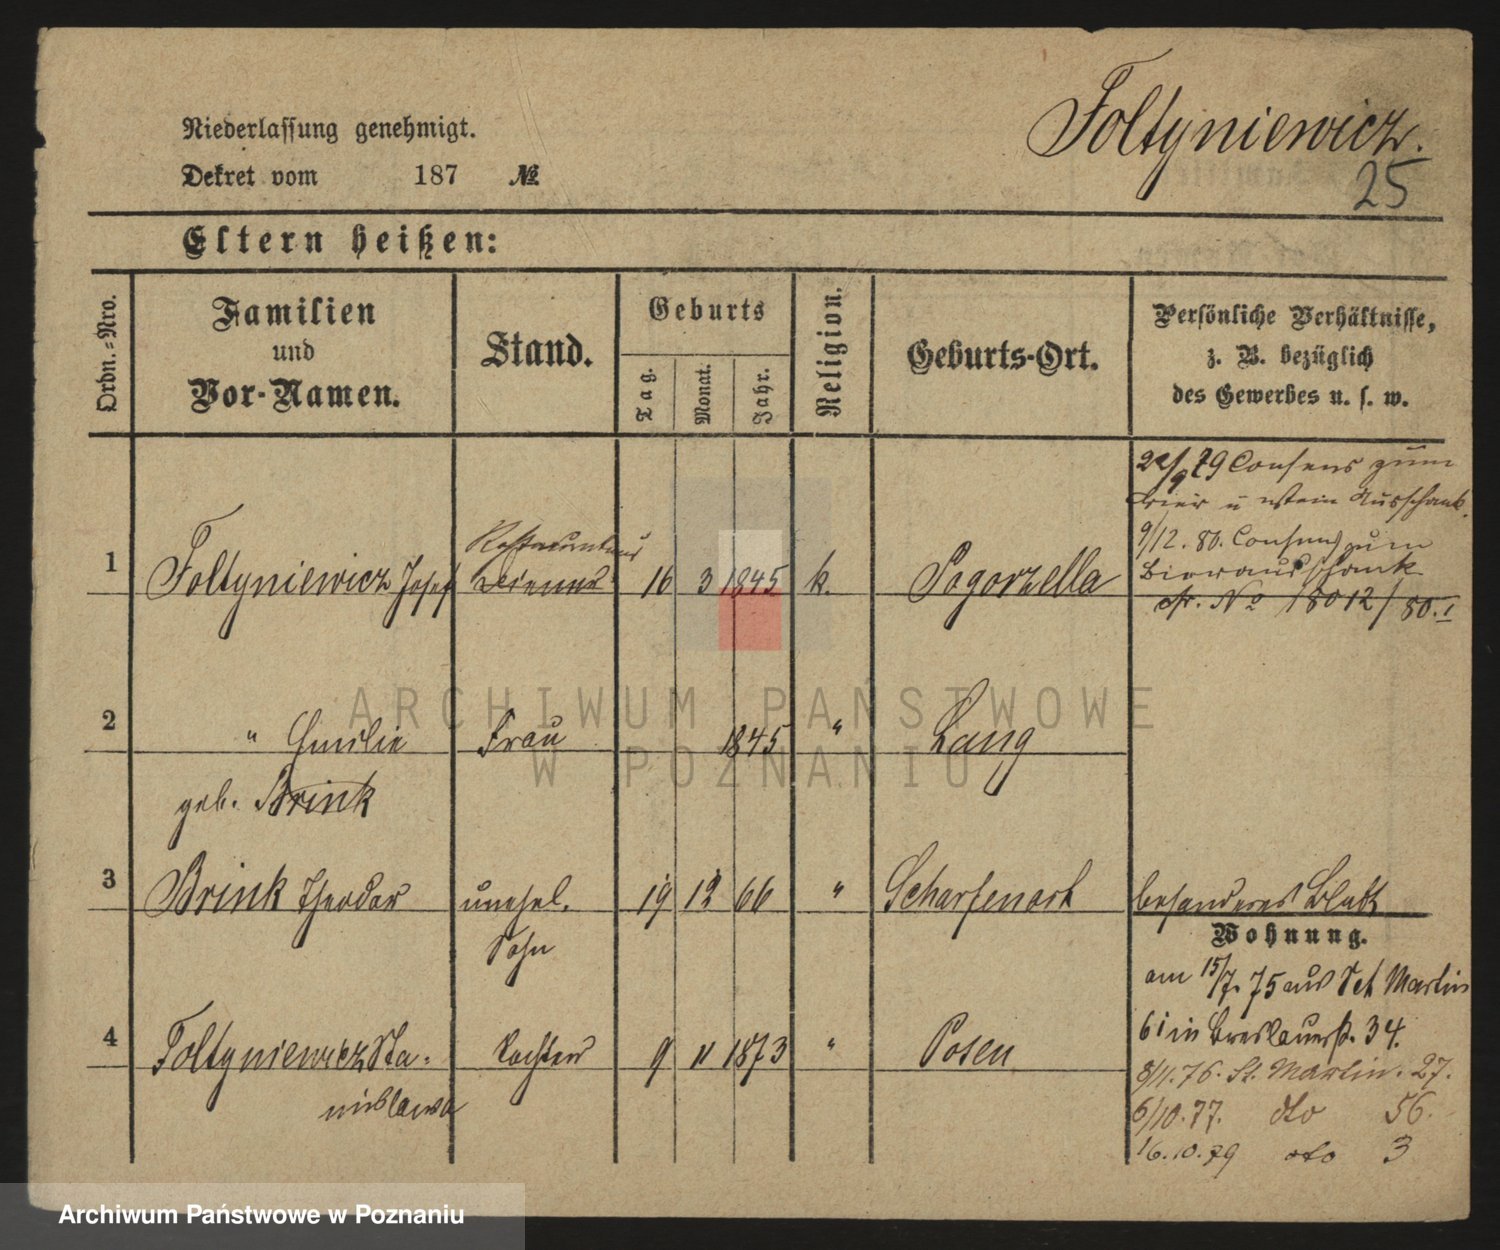 Foltyniewicz.
25
Niederlassung genehmigt.
Dekret vom 187 №
Eltern heißen:
Ordn.=Nro.
Familien
und
Vor-Namen.
Stand.
Geburts
Tag.
Monat.
Jahr.
Religion.
Geburts-Ort.
Persönliche Verhältnisse,
z. B. bezüglich
des Gewerbes u. s. w.
22/9 79 Consens zum
Bier u Wein Ausschank.
9/12. 80. Consens zum
Bierausschank
cfr. No 18012/80. I
Restaurateur
1 Foltyniewicz Josef Diener 16 3 1845 k. Pogorzella
2 " Emilie Frau 1845 " Lang
geb. Brink
3 Brink Theodor unehel. 19 12 66 " Scharfenort besonderes Blatt
Sohn
Wohnung.
am 15/7. 75 aus Sct Martin
61 in Breslauerstr. 34.
4 Foltyniewicz Sta- Tochter 9 11 1873 " Posen
nislawa
8/4. 76. St. Martin. 27.
6/10. 77. dto 56.
16. 10. 79 dto 3
ARCHIWUM PAŃSTWOWE
W POZNANIU
Archiwum Państwowe w Poznaniu